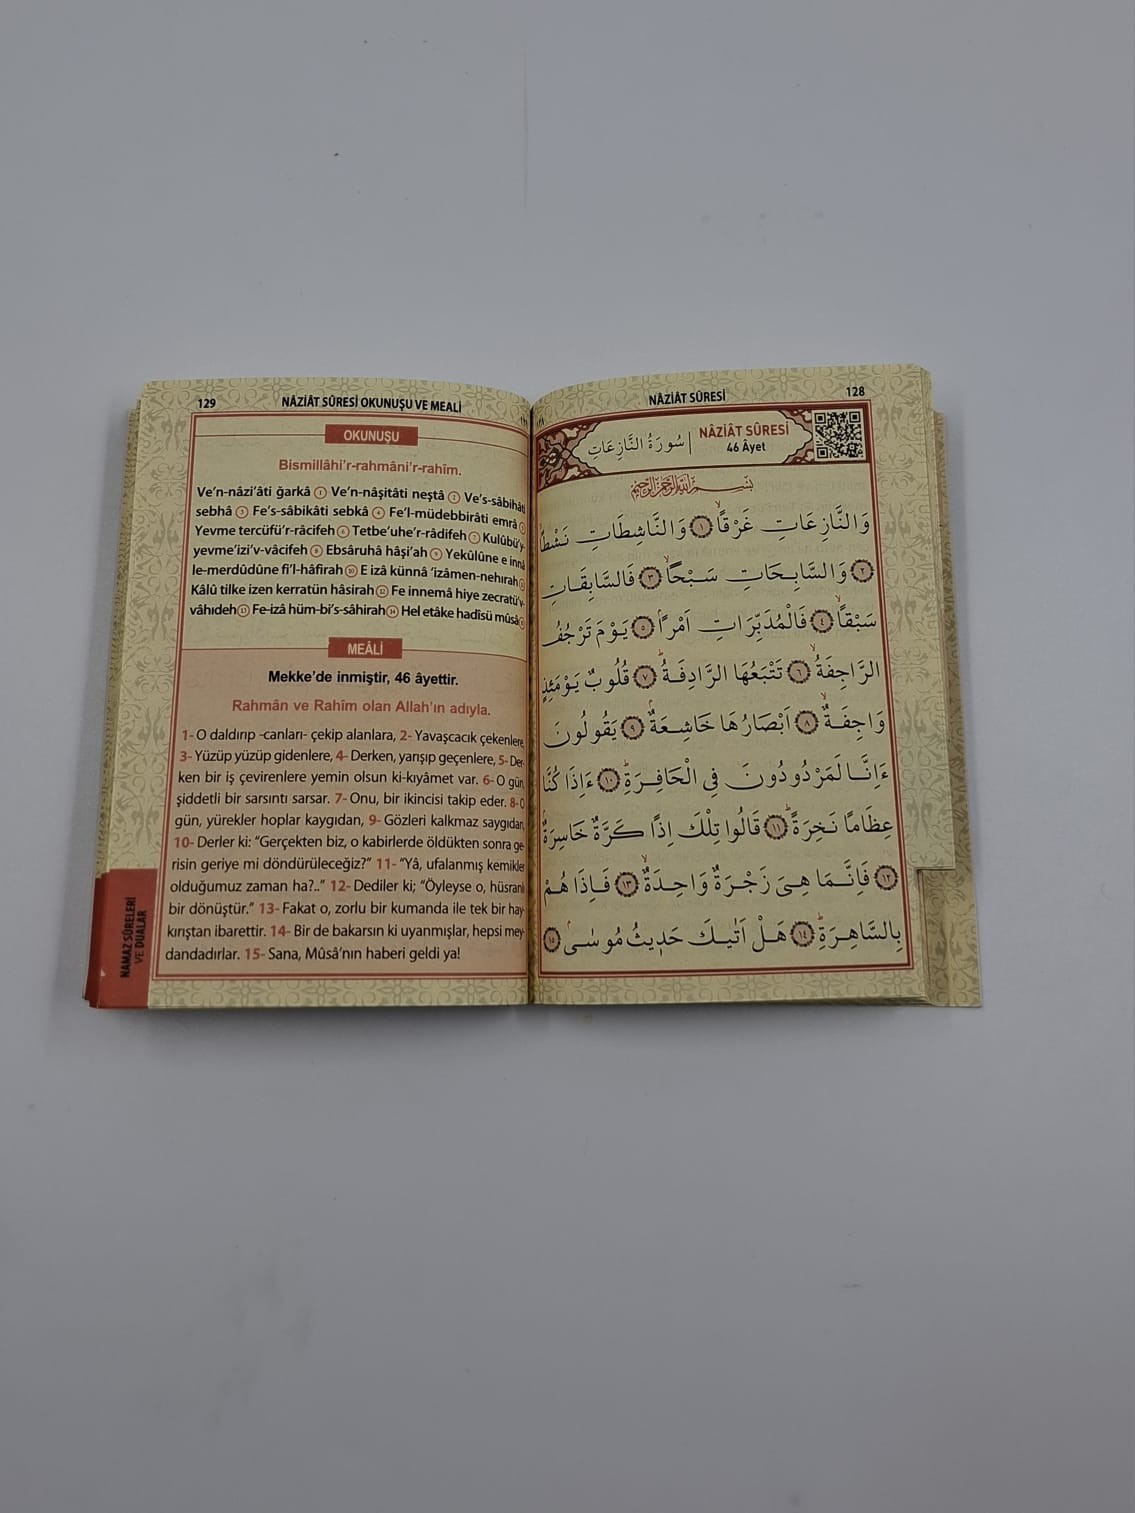 129
NÂZİÂT SÛRESİ OKUNUŞU VE MEALİ
OKUNUŞU
Bismillâhi'r-rahmâni'r-rahîm.
Ve'n-nâzi'âti ğarkâ ① Ve'n-nâşitâti neştâ ② Ve's-sâbihâti
sebhâ ③ Fe's-sâbikâti sebkâ ④ Fe'l-müdebbirâti emrâ ⑤
Yevme tercüfü'r-râcifeh ⑥ Tetbe'uhe'r-râdifeh ⑦ Kulûbü'y-
yevme'izi'v-vâcifeh ⑧ Ebsâruhâ hâşi'ah ⑨ Yekûlûne e innâ
le-merdûdûne fi'l-hâfirah ⑩ E izâ künnâ 'izâmen-nehırah ⑪
Kâlû tilke izen kerratün hâsirah ⑫ Fe innemâ hiye zecratü'v-
vâhıdeh ⑬ Fe-izâ hüm-bi's-sâhirah ⑭ Hel etâke hadîsü mûsâ ⑮
MEÂLİ
Mekke'de inmiştir, 46 âyettir.
Rahmân ve Rahîm olan Allah'ın adıyla.
1- O daldırıp -canları- çekip alanlara, 2- Yavaşcacık çekenlere,
3- Yüzüp yüzüp gidenlere, 4- Derken, yarışıp geçenlere, 5- Der-
ken bir iş çevirenlere yemin olsun ki-kıyâmet var. 6- O gün,
şiddetli bir sarsıntı sarsar. 7- Onu, bir ikincisi takip eder. 8- O
gün, yürekler hoplar kaygıdan, 9- Gözleri kalkmaz saygıdan,
10- Derler ki: "Gerçekten biz, o kabirlerde öldükten sonra ge-
risin geriye mi döndürüleceğiz?" 11- "Yâ, ufalanmış kemikler
olduğumuz zaman ha?.." 12- Dediler ki; "Öyleyse o, hüsranlı
bir dönüştür." 13- Fakat o, zorlu bir kumanda ile tek bir hay-
kırıştan ibarettir. 14- Bir de bakarsın ki uyanmışlar, hepsi mey-
dandadırlar. 15- Sana, Mûsâ'nın haberi geldi ya!
NAMAZ SÛRELERİ
VE DUALAR
NÂZİÂT SÛRESİ
128
سُورَةُ النَّازِعَاتِ
NÂZİÂT SÛRESİ
46 Âyet
بِسْمِ اللّٰهِ الرَّحْمٰنِ الرَّحِيمِ
وَالنَّازِعَاتِ غَرْقًاۙ ﴿١﴾ وَالنَّاشِطَاتِ نَشْطًاۙ
﴿٢﴾ وَالسَّابِحَاتِ سَبْحًاۙ ﴿٣﴾ فَالسَّابِقَاتِ
سَبْقًاۙ ﴿٤﴾ فَالْمُدَبِّرَاتِ اَمْرًاۢ ﴿٥﴾ يَوْمَ تَرْجُفُ
الرَّاجِفَةُۙ ﴿٦﴾ تَتْبَعُهَا الرَّادِفَةُۜ ﴿٧﴾ قُلُوبٌ يَوْمَئِذٍ
وَاجِفَةٌۙ ﴿٨﴾ اَبْصَارُهَا خَاشِعَةٌۢ ﴿٩﴾ يَقُولُونَ
ءَاِنَّا لَمَرْدُودُونَ فِي الْحَافِرَةِۜ ﴿١٠﴾ ءَاِذَا كُنَّا
عِظَامًا نَخِرَةًۜ ﴿١١﴾ قَالُوا تِلْكَ اِذًا كَرَّةٌ خَاسِرَةٌۢ
﴿١٢﴾ فَاِنَّمَا هِيَ زَجْرَةٌ وَاحِدَةٌۙ ﴿١٣﴾ فَاِذَا هُمْ
بِالسَّاهِرَةِۜ ﴿١٤﴾ هَلْ اَتٰيكَ حَدِيثُ مُوسٰىۢ ﴿١٥﴾